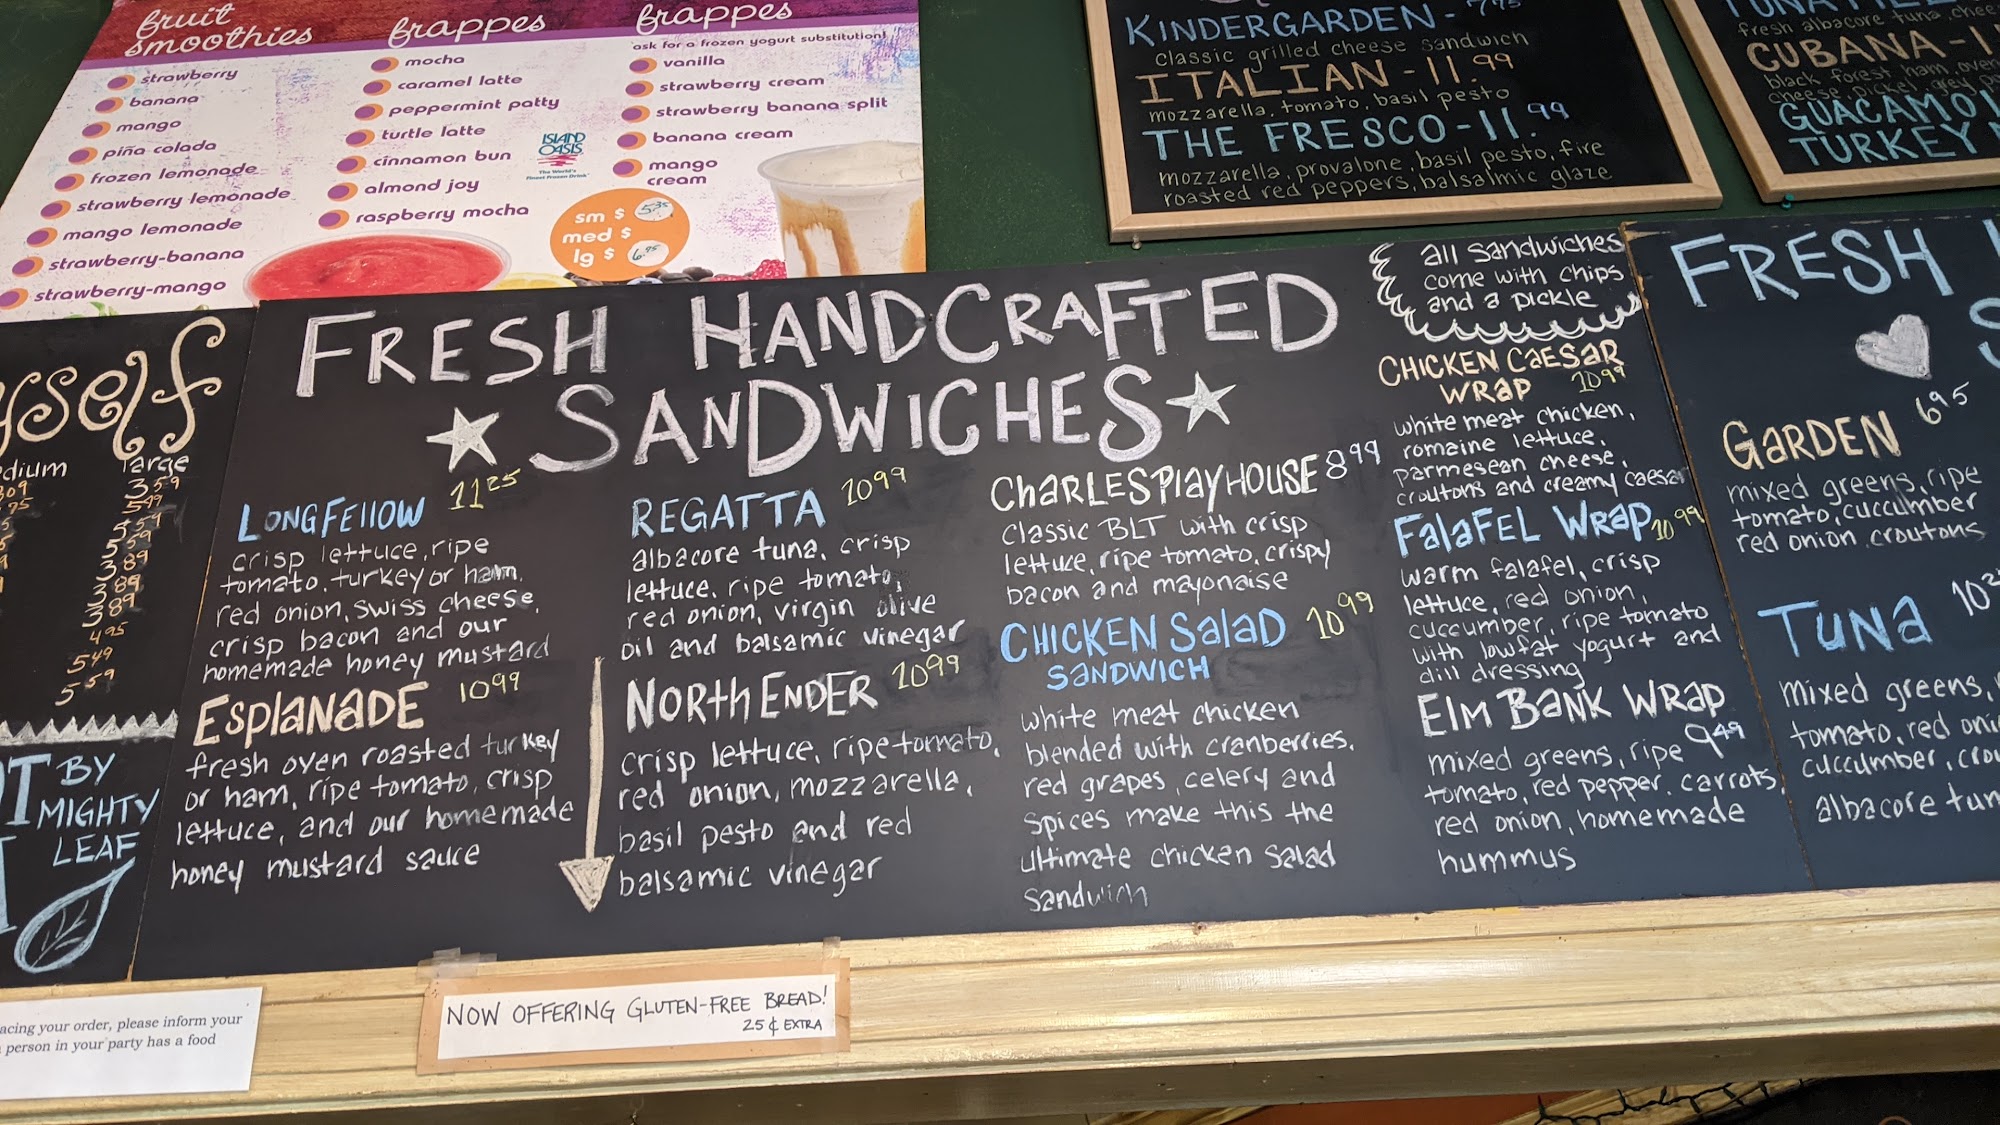 fruit
smoothies
strawberry
banana
mango
piña colada
frozen lemonade
strawberry lemonade
mango lemonade
strawberry-banana
strawberry-mango
frappes
mocha
caramel latte
peppermint patty
turtle latte
cinnamon bun
almond joy
raspberry mocha
ISLAND
OASIS
The World's
Finest Frozen Drink
frappes
ask for a frozen yogurt substitution!
vanilla
strawberry cream
strawberry banana split
banana cream
mango
cream
sm $ 5.35
med $
lg $ 6.95
KINDERGARDEN - 7.95
classic grilled cheese sandwich
ITALIAN - 11.99
mozzarella, tomato, basil pesto
THE FRESCO - 11.99
mozzarella, provalone, basil pesto, fire
roasted red peppers, balsalmic glaze
fresh albacore tuna, chee
CUBANA - 1
black forest ham, oven
cheese, pickel, grey po
GUACAMO
TURKEY
yself
dium large
309 359
549
559
389
389
389
495
549
559
BY
MIGHTY
LEAF
FRESH HANDCRAFTED
SANDWICHES
LONGFELLOW 11 25
crisp lettuce, ripe
tomato, turkey or ham,
red onion, swiss cheese,
crisp bacon and our
homemade honey mustard
ESPLANADE 10 99
fresh oven roasted turkey
or ham, ripe tomato, crisp
lettuce, and our homemade
honey mustard sauce
REGATTA 10 99
albacore tuna, crisp
lettuce, ripe tomato,
red onion, virgin olive
oil and balsamic vinegar
NORTH ENDER 10 99
crisp lettuce, ripe tomato,
red onion, mozzarella,
basil pesto and red
balsamic vinegar
CHARLESPLAYHOUSE 8 99
classic BLT with crisp
lettuce, ripe tomato, crispy
bacon and mayonaise
CHICKEN SALAD 10 99
SANDWICH
white meat chicken
blended with cranberries,
red grapes, celery and
spices make this the
ultimate chicken salad
sandwich
all sandwiches
come with chips
and a pickle
CHICKEN CAESAR
WRAP 10 99
white meat chicken,
romaine lettuce,
parmesean cheese,
croutons and creamy caesar
FALAFEL WRAP 10 99
warm falafel, crisp
lettuce, red onion,
cuccumber, ripe tomato
with lowfat yogurt and
dill dressing
ELM BANK WRAP
9 49
mixed greens, ripe
tomato, red pepper, carrots,
red onion, homemade
hummus
FRESH
GARDEN 6 95
mixed greens, ripe
tomato, cuccumber
red onion, croutons
TUNA 10
mixed greens,
tomato, red oni
cuccumber, crou
albacore tun
NOW OFFERING GLUTEN-FREE BREAD!
25¢ EXTRA
acing your order, please inform your
person in your party has a food